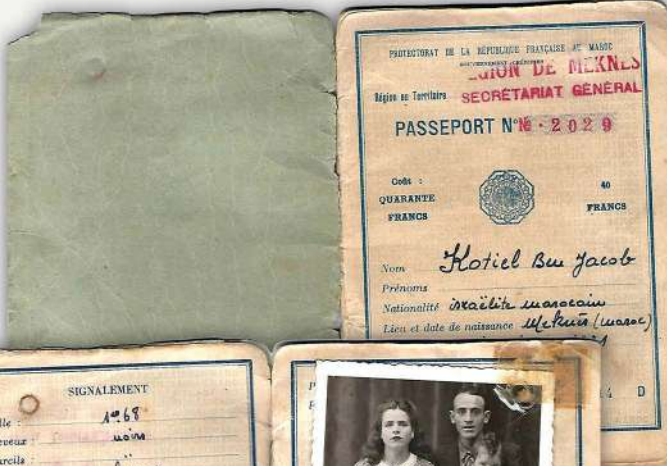 PROTECTORAT DE LA RÉPUBLIQUE FRANÇAISE AU MAROC
GOUVERNEMENT CHÉRIFIEN
GION DE MEKNES
Région ou Territoire SECRÉTARIAT GÉNÉRAL
PASSEPORT N° № · 2029
Coût :
QUARANTE
FRANCS
40
FRANCS
Nom Kotiel Ben Jacob
Prénoms
Nationalité israëlite marocain
Lieu et date de naissance Meknès (maroc)
D
SIGNALEMENT
1m68
noirs